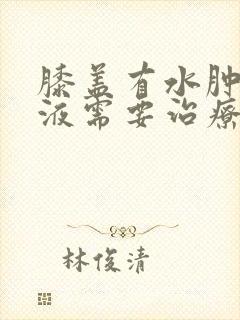 膝盖有水肿
液需要治疗
林俊清